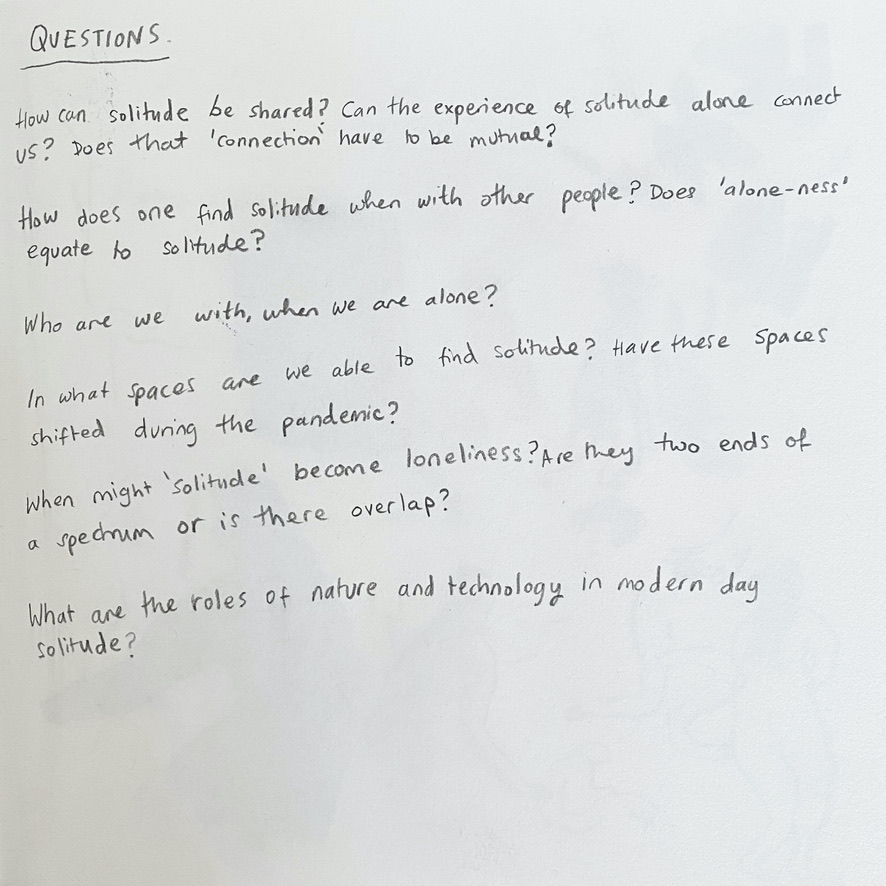 QUESTIONS.
How can solitude be shared? Can the experience of solitude alone connect
us? Does that 'connection' have to be mutual?
How does one find solitude when with other people? Does 'alone-ness'
equate to solitude?
Who are we with, when we are alone?
In what spaces are we able to find solitude? Have these spaces
shifted during the pandemic?
When might 'solitude' become loneliness? Are they two ends of
a spectrum or is there overlap?
What are the roles of nature and technology in modern day
solitude?